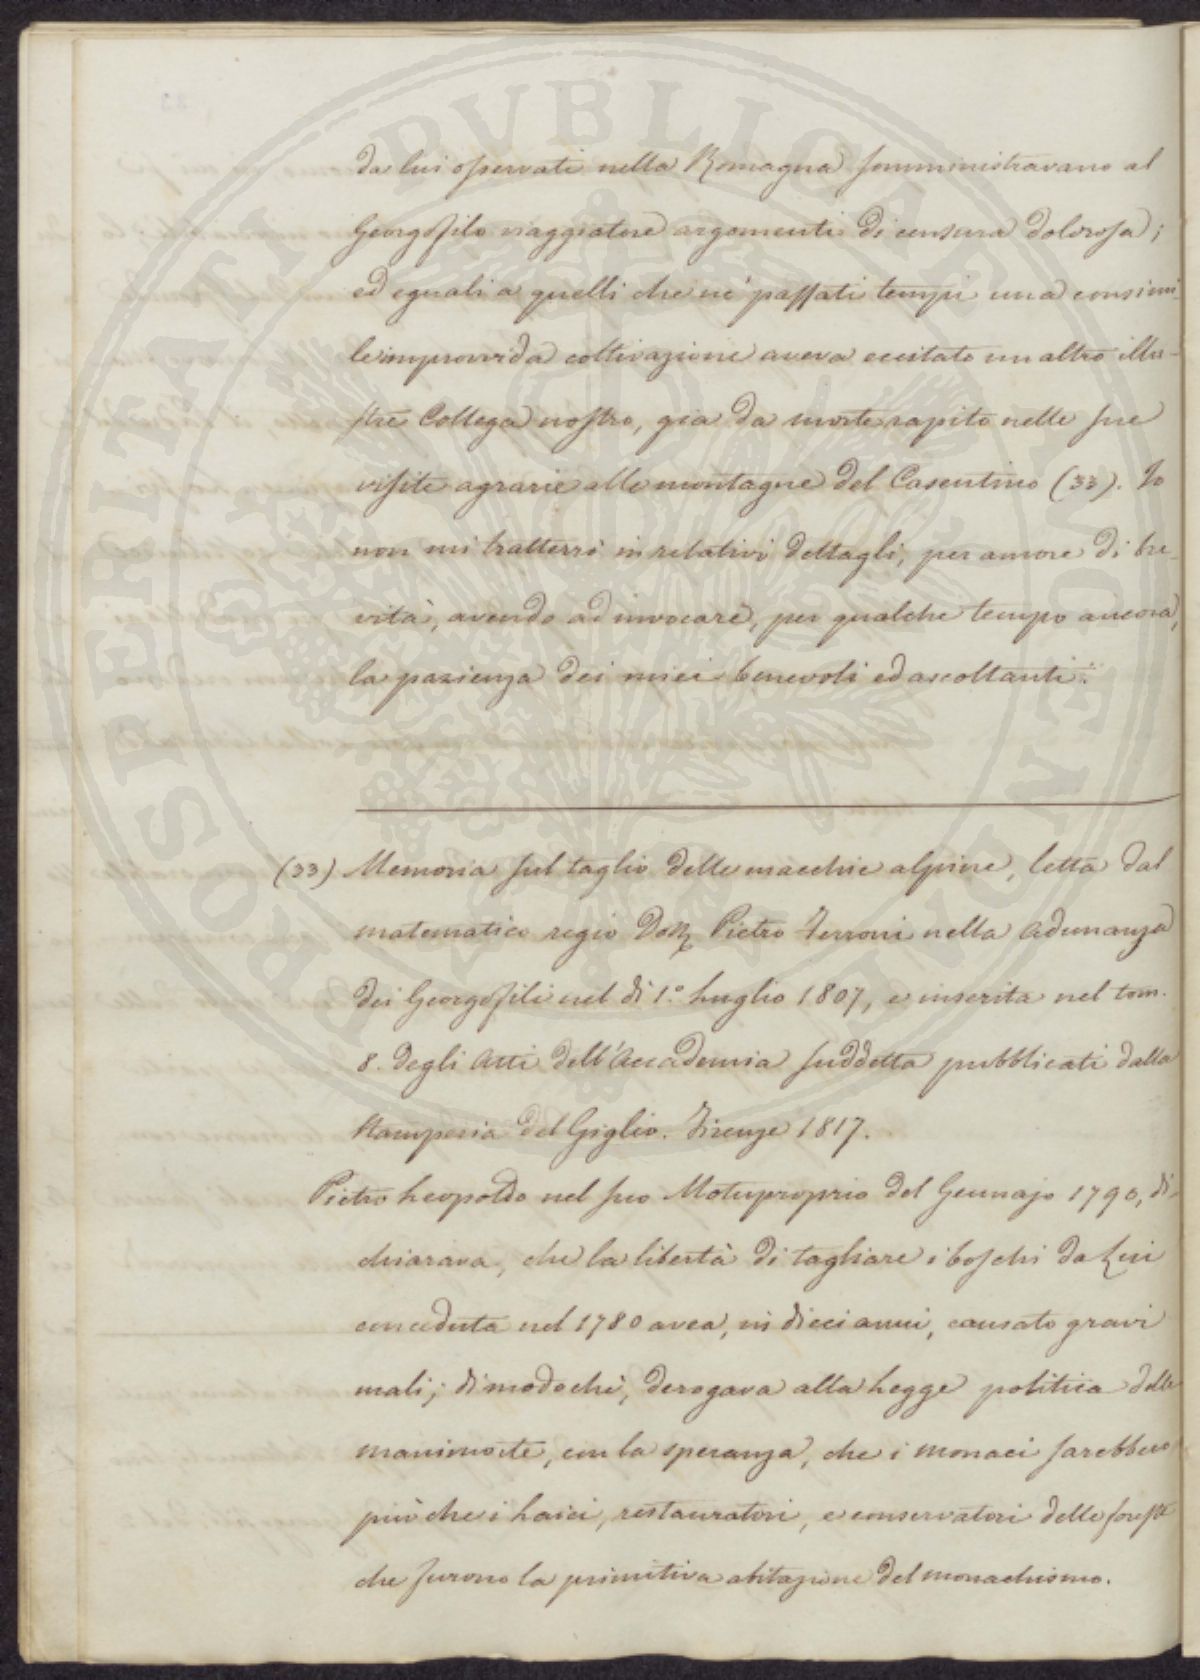 PROSPERITATI PVBLICAE AVGENDAE
da lui osservati nella Romagna somministravano al
Georgofilo viaggiatore argomenti di censura dolorosa;
ed eguali a quelli che ne' passati tempi una consimi-
le improvvida coltivazione aveva eccitato un altro illu-
stre Collega nostro, gia da morte rapito nelle sue
visite agrarie alle montagne del Casentino (33). Io
non mi tratterrò in relativi dettagli, per amore di bre-
vità, avendo ad invocare, per qualche tempo ancora,
la pazienza dei miei benevoli ed ascoltanti.
(33) Memoria sul taglio delle macchie alpine, letta dal
matematico regio Dott. Pietro Ferroni nella Adunanza
dei Georgofili nel dì 1.° Luglio 1807, e inserita nel tom.
8. degli Atti dell'Accademia suddetta pubblicati dalla
Stamperia del Giglio. Firenze 1817.
Pietro Leopoldo nel suo Motuproprio del Gennajo 1790, di-
chiarava, che la libertà di tagliare i boschi da Lui
conceduta nel 1780 avea, in dieci anni, causato gravi
mali; dimodochè, derogava alla Legge politica delle
manimorte, con la speranza, che i monaci sarebbero
più che i Laici, restauratori, e conservatori delle foreste
che furono la primitiva abitazione del monachismo.